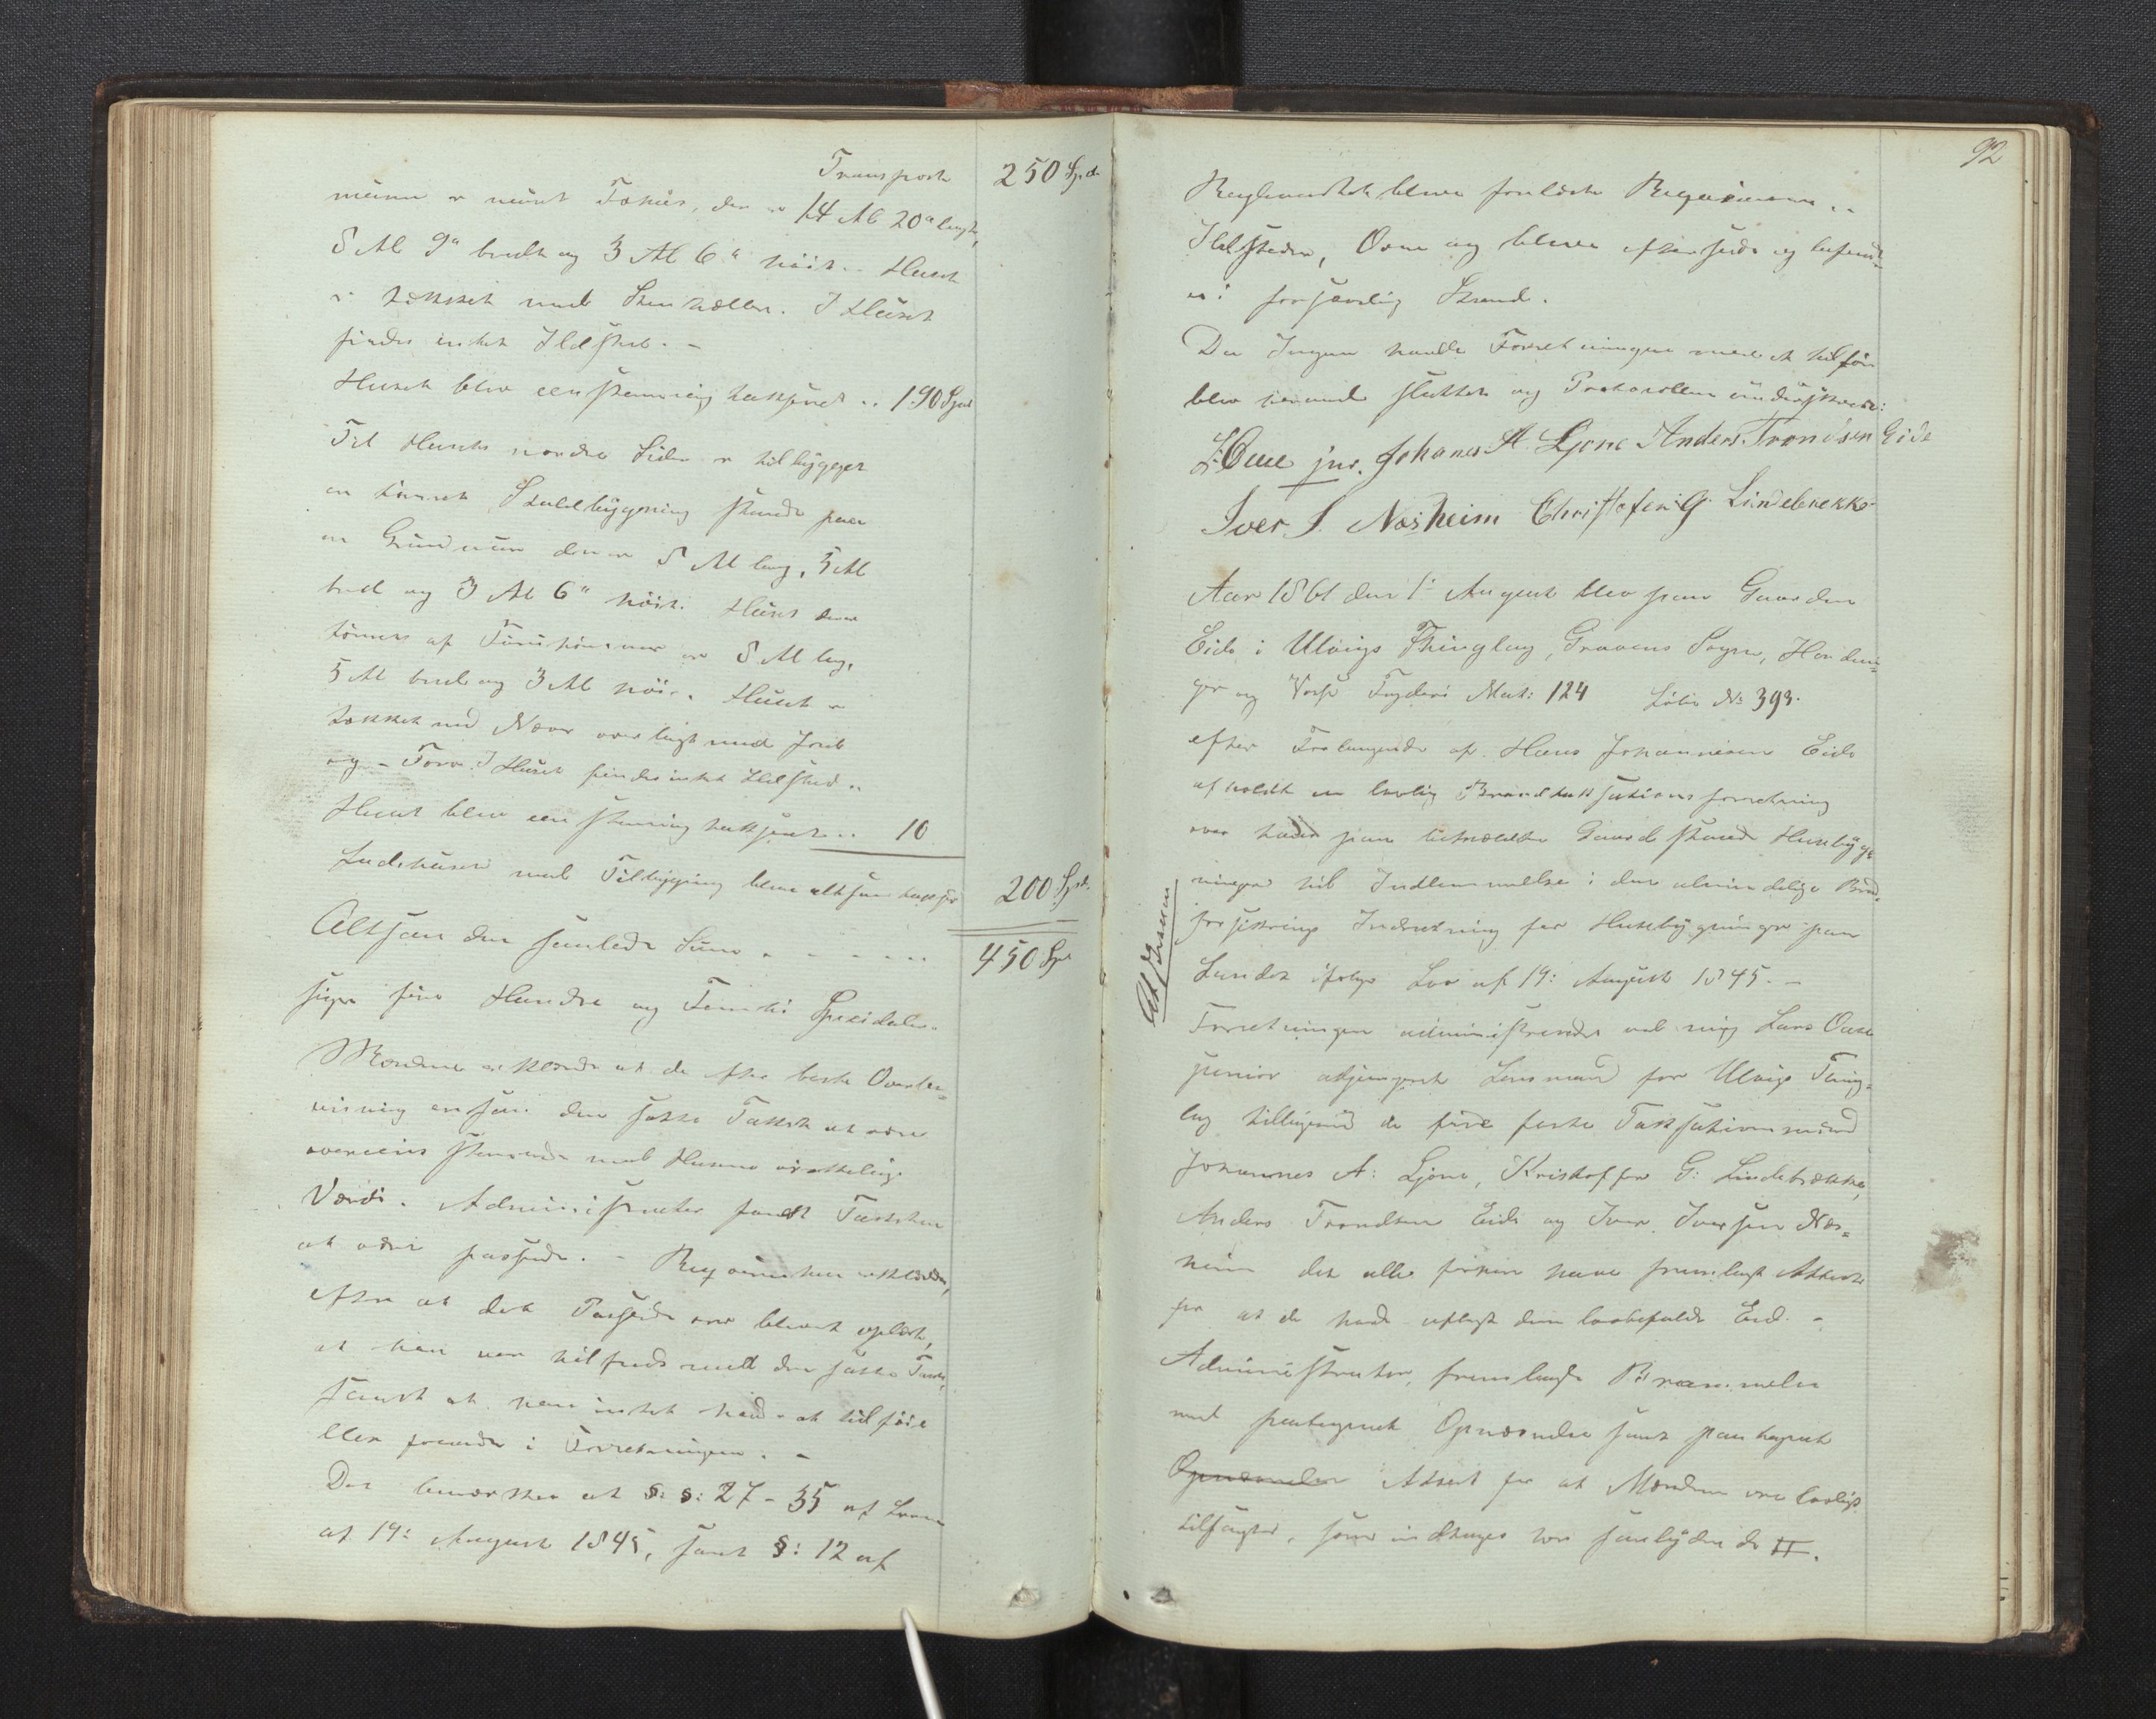 Transport 250 Spd.
muur er muret Fæhuus, der er 14 Al 20" langt,
8 Al 9" bredt og 3 Al 6" høit. Huset
er tækket med Steenhæller. I Huset
findes intet Ildsted. -
Huset blev eenstemmig taxeret .. 190 Spd
Til Husets nordre Side er tilbygget
en tømret Staldbygning staaende paa
en Grundmuur der er 8 Al lang, 5 Al
bred og 3 Al 6" høit. Huset der er
tømret af Furutømmer er 8 Al lang,
5 Al bred og 3 Al høi. Huset er
tækket med Næver overlagt med Jord
og Torv. I Huset findes intet Ildsted ..
Huset blev eenstemmig taxeret .. 10
Ladehuset med Tilbygging blev altsaa taxeret 200 Spd.
Altsaa den samlede Sum - - - - - 450 Spd
siger fire Hundre og Femti Speciedaler.
Mændene erklærede at de efter beste Overbe-
visning ansaa den satte Taxt at være
overeensstemmende med Husenes virkelige
Værdi. Administrator fandt Taxten
at være passende. - Reqvirenten erklærede,
efter at det Passerede var blevet oplæst,
at han var tilfreds med den satte Taxt,
samt at han intet havde at tilføie
eller forandre i Forretningen. -
Det bemærkes at §: §: 27 - 35 af Loven
af 19: August 1845, samt §: 12 af
92
Reglementet blev forelæst Reqvirenten ..
Ildsteder, Ovne og bleve efterseede og befund-
es i forsvarlig Stand.
Da Ingen havde Forretningen mere at tilføie
blev den sluttet og Protocollen underskrevet:
L: Oure jnr. Johanes A Ljone Anders Trondsen Eide
Iver I. Næsheim Christofer G. Lindebrekke
Aar 1861 den 1ste August blev paa Gaarden
Eide i Ulvigs Thinglag, Gravens Sogn, Hardan-
ger og Voss Fogderi Mat: 124 Løbe No 393.
efter Forlangende af Hans Johannesen Eide
afholdt en lovlig Brandtaxationsforretning
over hans paa bemeldte Gaard staaende Husebyg-
ninger til Indlemmelse i den almindelige Brand-
forsikrings Indretning for Husebygninger paa
Landet ifølge Lov af 19: August 1845. -
Act Skreven
Forretningen administreredes ved mig Lars Oure
junior adjungeret Lensmand for Ulvigs Thing-
lag tilligemed de fire faste Taxationsmænd
Johannes A: Ljone, Kristoffer G: Lindebrække,
Anders Trondsen Eide og Iver Iversen Næs-
heim der alle førhen have fremlagt Attest
for at de havde aflagt den lovbefalede Eed. -
Administrator fremlagde Brammelse
med paategnet Opnævnelse samt paategnet
Opnævnelse Attest for at Mændene vare lovligt
tilsagte, som indtages her saalydende #.